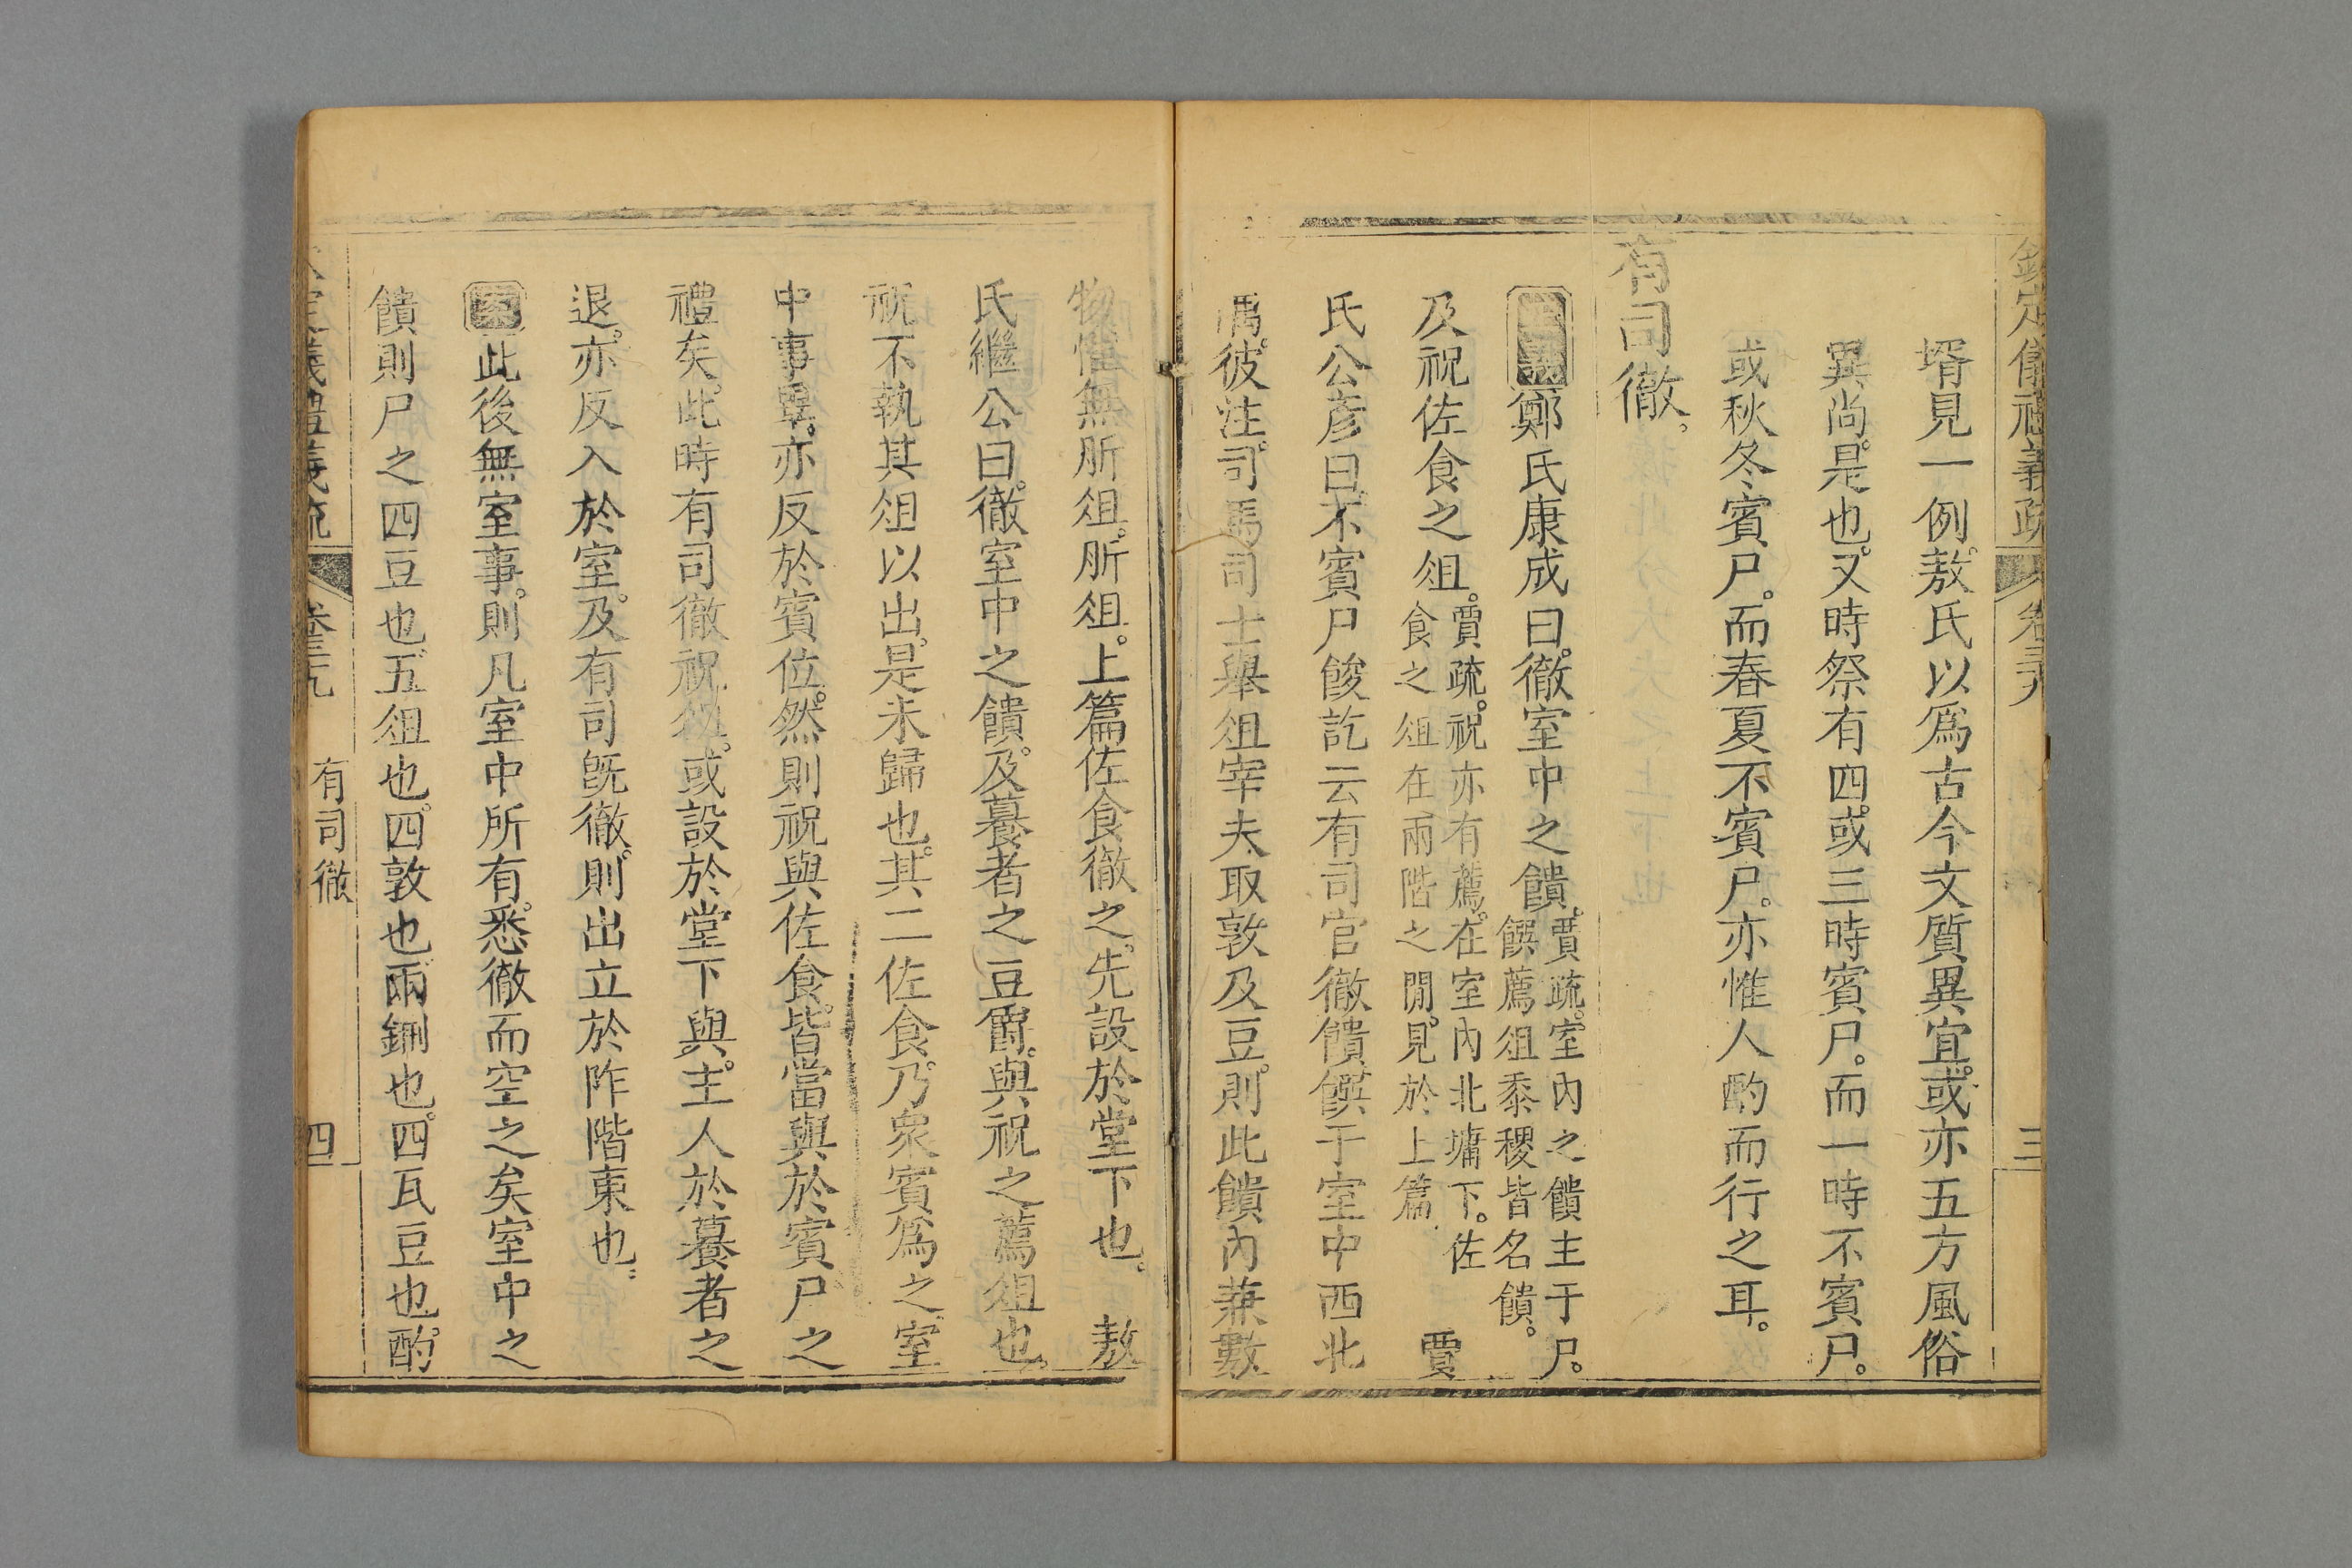 欽定儀禮義疏 卷三十九 三
壻見一例敖氏以爲古今文質異宜或亦五方風俗
異尚是也又時祭有四或三時賓尸而一時不賓尸
或秋冬賓尸而春夏不賓尸亦惟人酌而行之耳
有司徹
正義鄭氏康成曰徹室中之饋
賈疏室內之饋主于尸
饌薦俎黍稷皆名饋
及祝佐食之俎
賈疏祝亦有薦在室內北墉下佐
食之俎在兩階之閒見於上篇
賈
氏公彥曰不賓尸餕訖云有司官徹饋饌于室中西北
隅彼注司馬司士舉俎宰夫取敦及豆則此饋內兼數
物惟無肵俎肵俎上篇佐食徹之先設於堂下也 敖
氏繼公曰徹室中之饋及䉵者之豆爵與祝之薦俎也
祝不執其俎以出是未歸也其二佐食乃衆賓爲之室
中事畢亦反於賓位然則祝與佐食皆當與於賓尸之
禮矣此時有司徹祝俎或設於堂下與主人於䉵者之
退亦反入於室及有司旣徹則出立於阼階東也
案此後無室事則凡室中所有悉徹而空之矣室中之
饋則尸之四豆也五俎也四敦也兩鉶也四瓦豆也酌
欽定儀禮義疏 卷三十九 有司徹 四